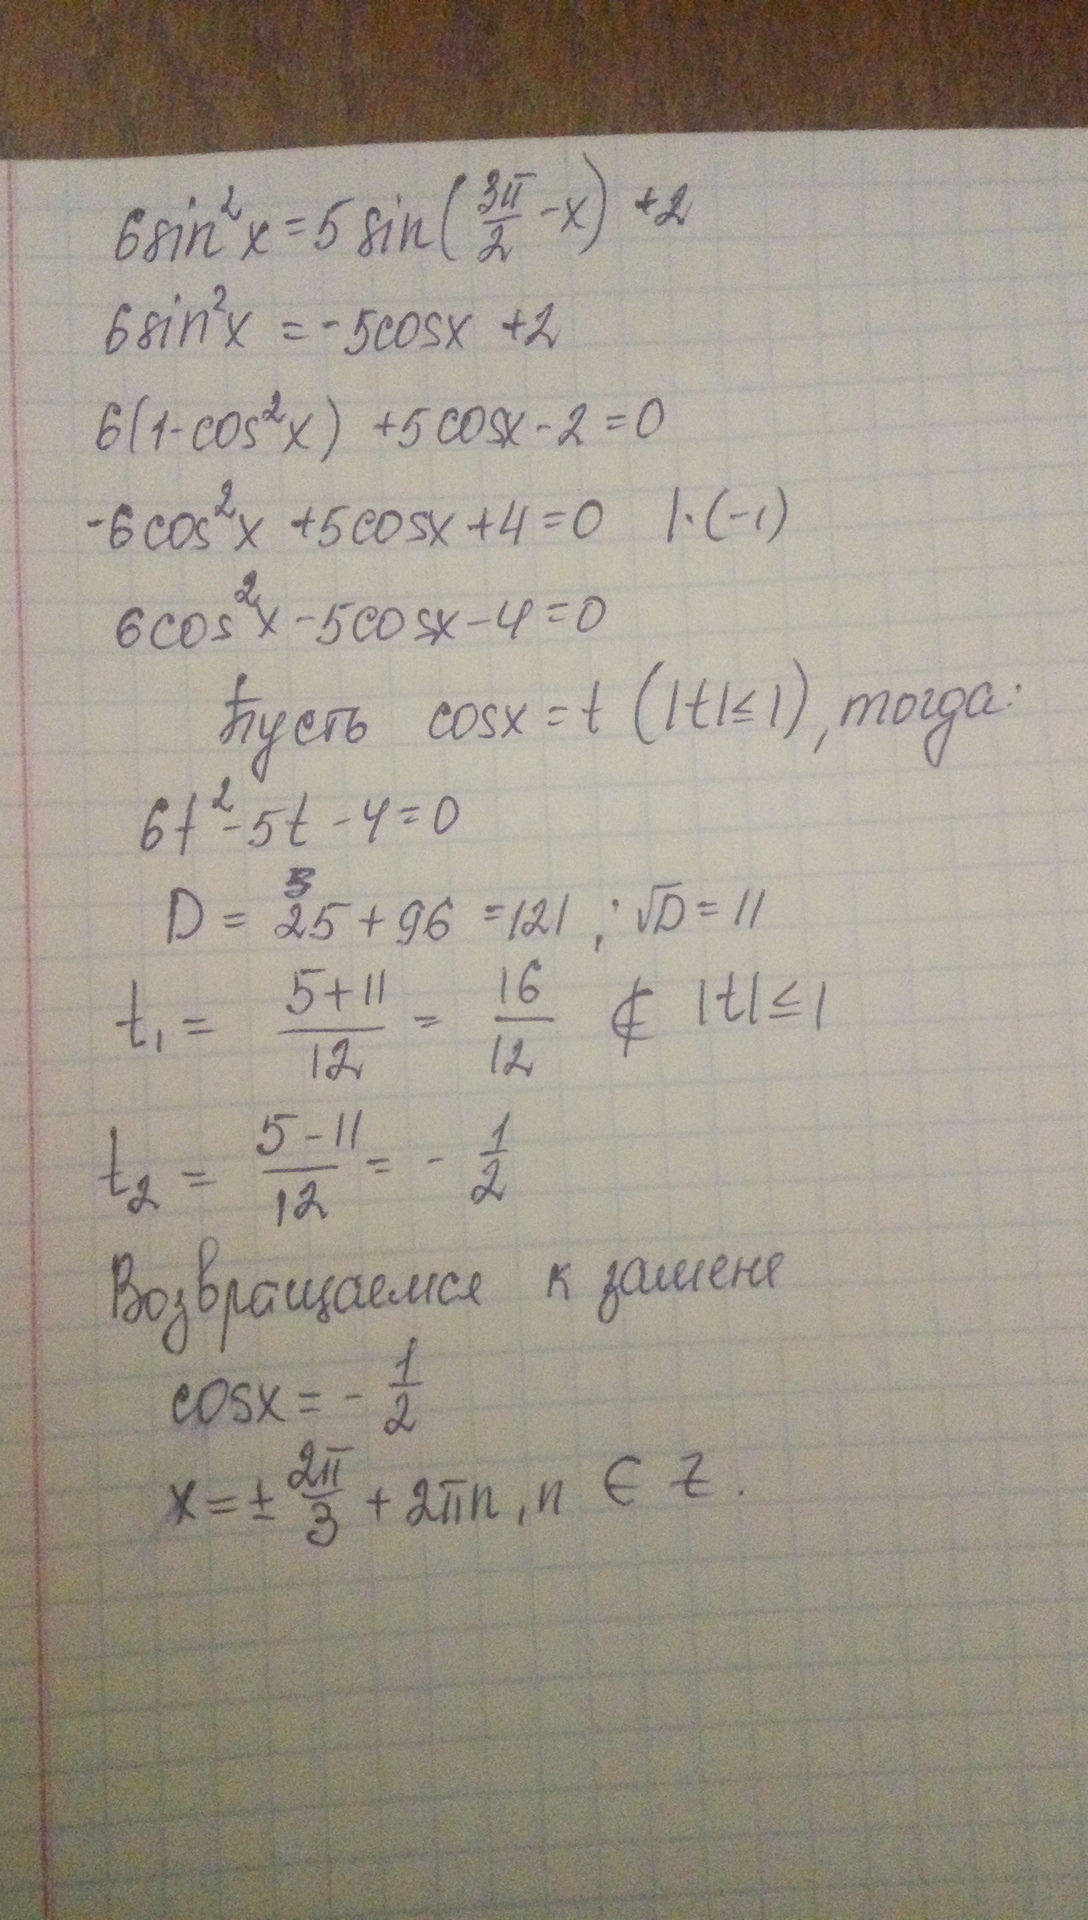 6sin²x = 5sin(3π/2 - x) + 2
6sin²x = -5cosx + 2
6(1 - cos²x) + 5cosx - 2 = 0
-6cos²x + 5cosx + 4 = 0 |·(-1)
6cos²x - 5cosx - 4 = 0
Пусть cosx = t (|t| ≤ 1), тогда:
6t² - 5t - 4 = 0
D = 25 + 96 = 121; √D = 11
t₁ = (5+11)/12 = 16/12 ⊄ |t| ≤ 1
t₂ = (5-11)/12 = -1/2
Возвращаемся к замене
cosx = -1/2
x = ± 2π/3 + 2πn, n ∈ Z.